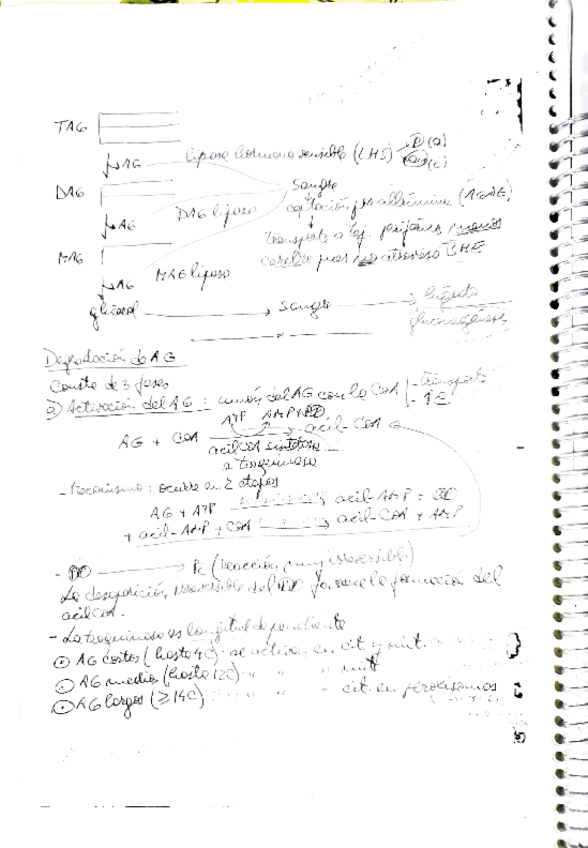 TAG
AG lipasa hormono sensible (LHS) P (a)
(c)
DAG
Sangre
captación por albúmina (AGNE)
AG DAG lipasa
transporte a tej. periférico, menos
MAG
cerebro pues no atraviesa BHE
AG MAG lipasa
glicerol → sangre → hígado
gluconeogénesis
Degradación de AG
Consta de 3 fases
a) Activación del AG: unión del AG con la CoA - transporte
ATP AMP+
AG + COA → acil-COA
acilCOA sintetasa
o tioquinasa
- Mecanismo: ocurre en 2 etapas
AG + ATP → acil-AMP +
+ acil-AMP + COA → acil-COA + AMP
→ Pi (reacción muy irreversible)
La desaparición irreversible del favorece la formación del
acil COA.
- La tioquinasa es longitud dependiente
AG cortos (hasta 4C): se activa en cit y mit.
AG medio (hasta 12C) " " " mit
AG largos (≥14C) " " " cit. en peroxisomas